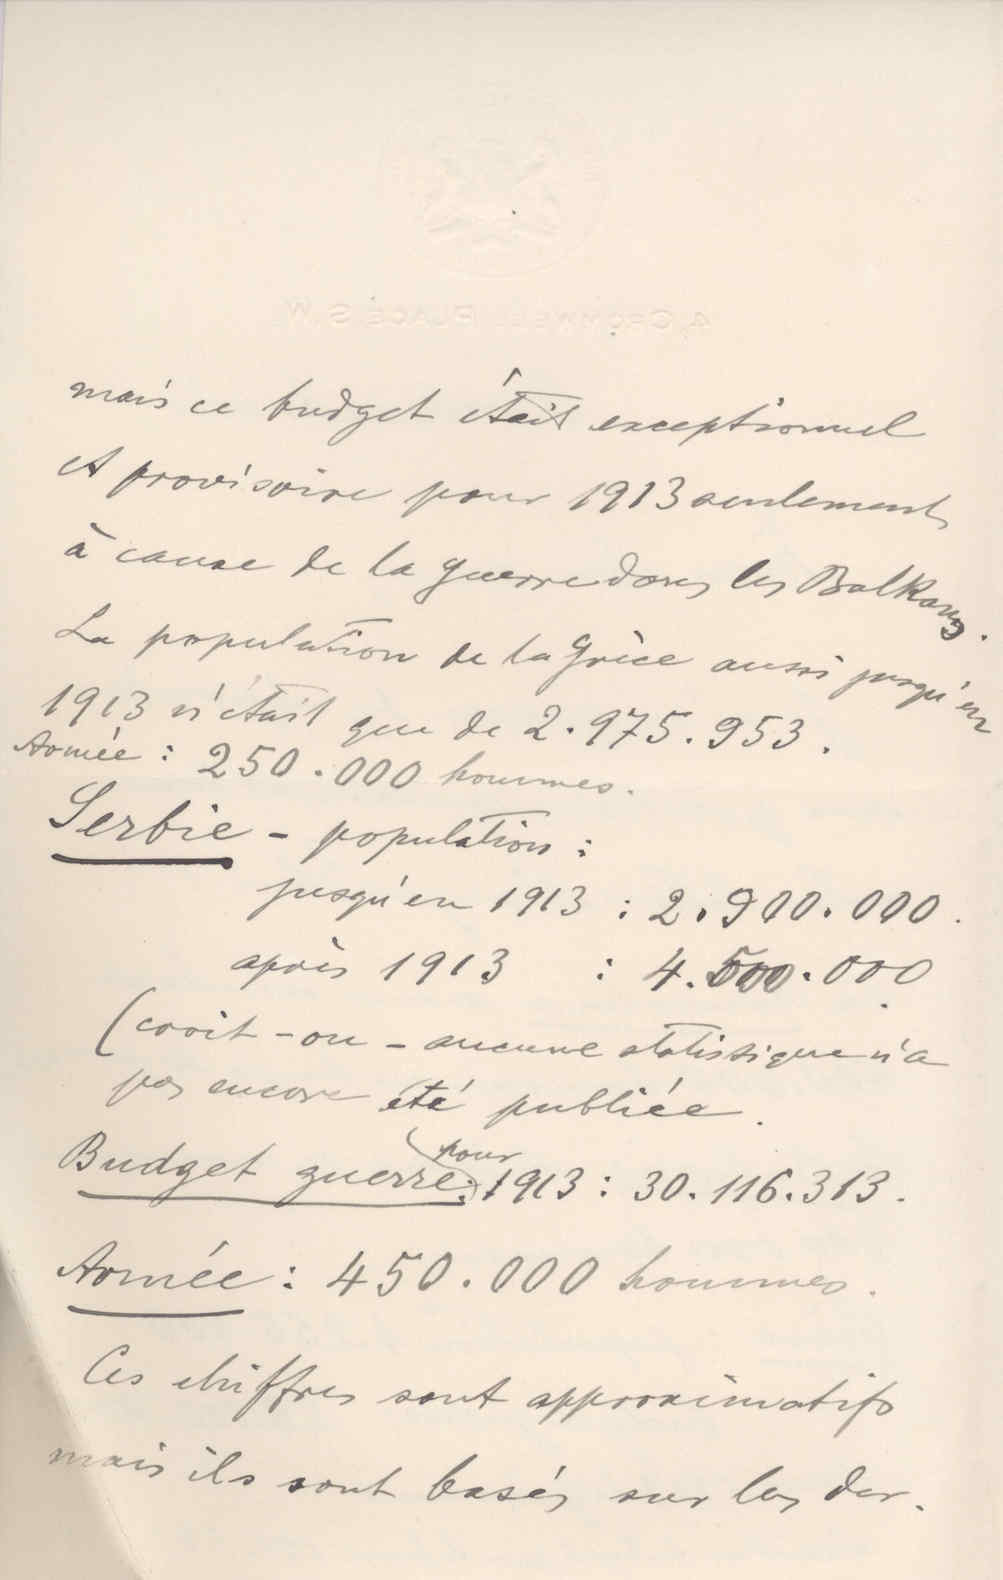 4, CROMWELL PLACE. S.W.
mais ce budget était exceptionnel
et provisoire pour 1913 seulement
à cause de la guerre dans les Balkans.
La population de la Grèce aussi jusqu'en
1913 n'était que de 2.975.953.
Armée : 250.000 hommes.
Serbie - population :
jusqu'en 1913 : 2.900.000.
après 1913 : 4.500.000
(croit-on - aucune statistique n'a
pas encore été publiée.
Budget guerre: pour 1913 : 30.116.313.
Armée : 450.000 hommes.
Ces chiffres sont approximatifs
mais ils sont basés sur les der.